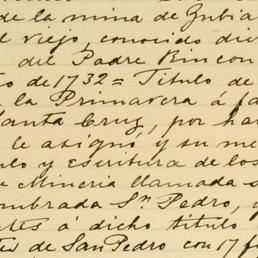 de la mina de Zubia
el viejo, conocido di
del Padre Rincon
o de 1732 = Titulo de
la Primavera á fa
Santa Cruz, por ha
le asigno y su me
lo y escritura de los
e Mineria llamada
mbrada Sn. Pedro, y
tes á dicho titulo
de San Pedro con 17 f